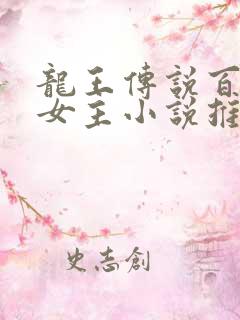 龍王傳說百
女主小說推
史志創